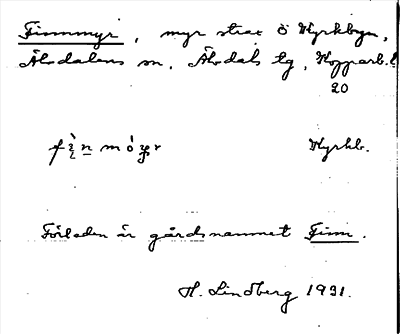 Finnmyr, myr strax ö Kyrkbyn,
Älvdalens sn, Älvdals tg, Kopparb. l.
20
Kyrkb.
Förleden är gårdsnamnet Finn.
H. Lindberg 1931.